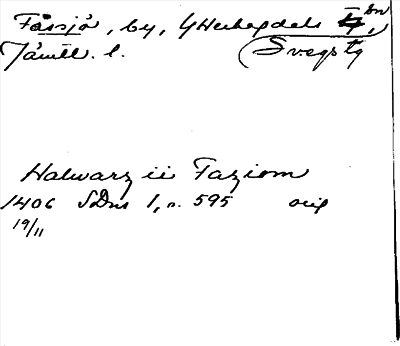 Fåssjö, by, Y Herhogdals sn,
Jämtl. l. Svegs tg
Halwarz ii Faziom
1406 SDns 1, s. 595 orig
19/11